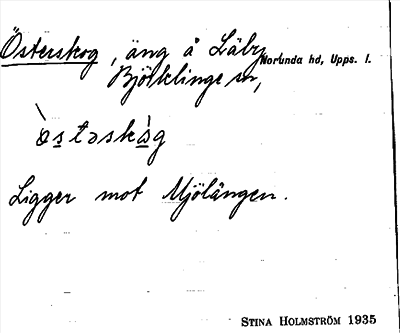 Österskog, äng å Läby, Norunda hd, Upps. l.
Björklinge sn,
ò̱stəskà̱g
Ligger mot Mjölängen.
STINA HOLMSTRÖM 1935